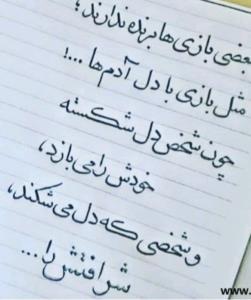 بعضی بازی ها برنده ندارند؛
مثل بازی با دل آدم ها ...!
چون شخص دل شکسته
خودش را می بازد،
و شخصی که دل می شکند،
شرافتش را...
www.